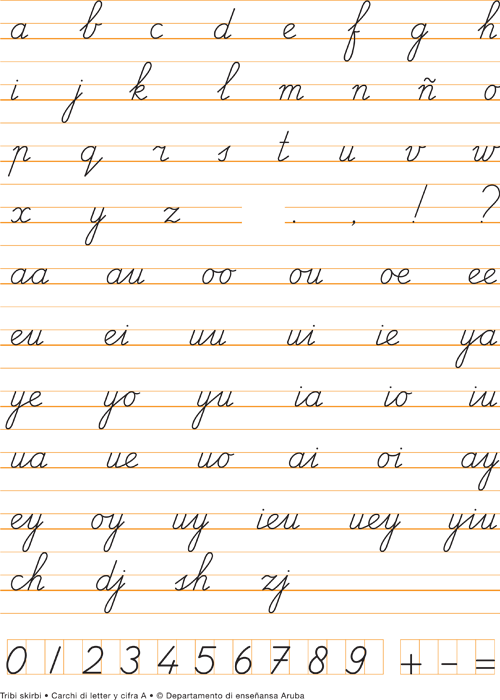 a b c d e f g h
i j k l m n ñ o
p q r s t u v w
x y z . , ! ?
aa au oo ou oe ee
eu ei uu ui ie ya
ye yo yu ia io iu
ua ue uo ai oi ay
ey oy uy ieu uey yiu
ch dj sh zj
0 1 2 3 4 5 6 7 8 9 + - =
Tribi skirbi • Carchi di letter y cifra A • © Departamento di enseñansa Aruba